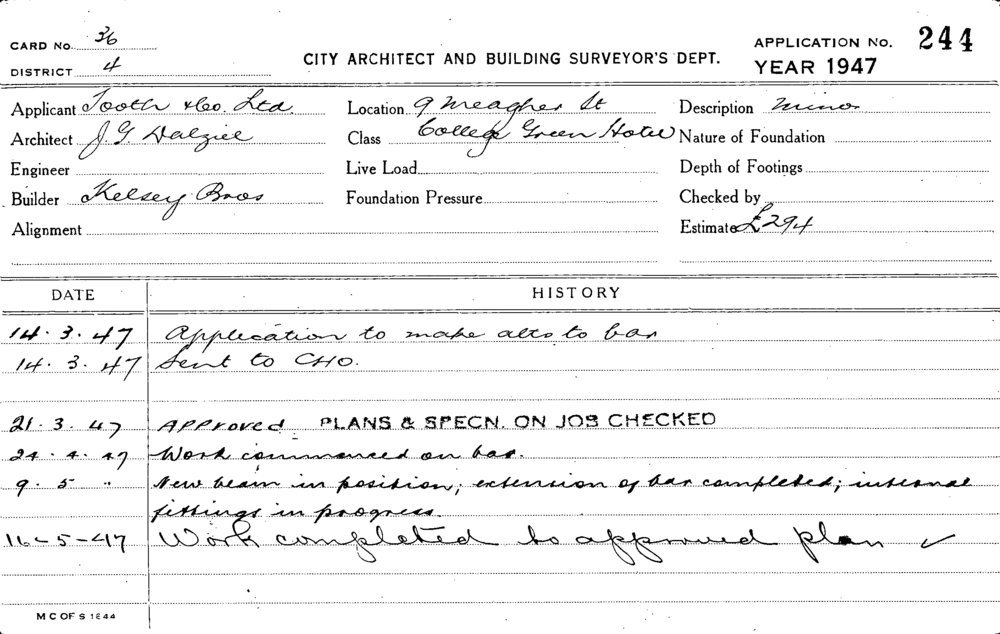 CARD No. 36
DISTRICT 4
CITY ARCHITECT AND BUILDING SURVEYOR'S DEPT.
APPLICATION No. 244
YEAR 1947
Applicant Tooth & Co. Ltd. Location 9 Meagher St Description Minor
Architect J. G. Dalziel Class College Green Hotel Nature of Foundation
Engineer Live Load Depth of Footings
Builder Kelsey Bros Foundation Pressure Checked by
Alignment Estimate £294
DATE HISTORY
14.3.47 Application to make alts to bar
14.3.47 Sent to CHO.
21.3.47 Approved PLANS & SPECN. ON JOB CHECKED
24.4.47 Work commenced on bar.
9.5 " New beam in position; extension of bar completed; internal
fittings in progress.
16-5-47 Work completed to approved plan ✓
M C OF S 1844